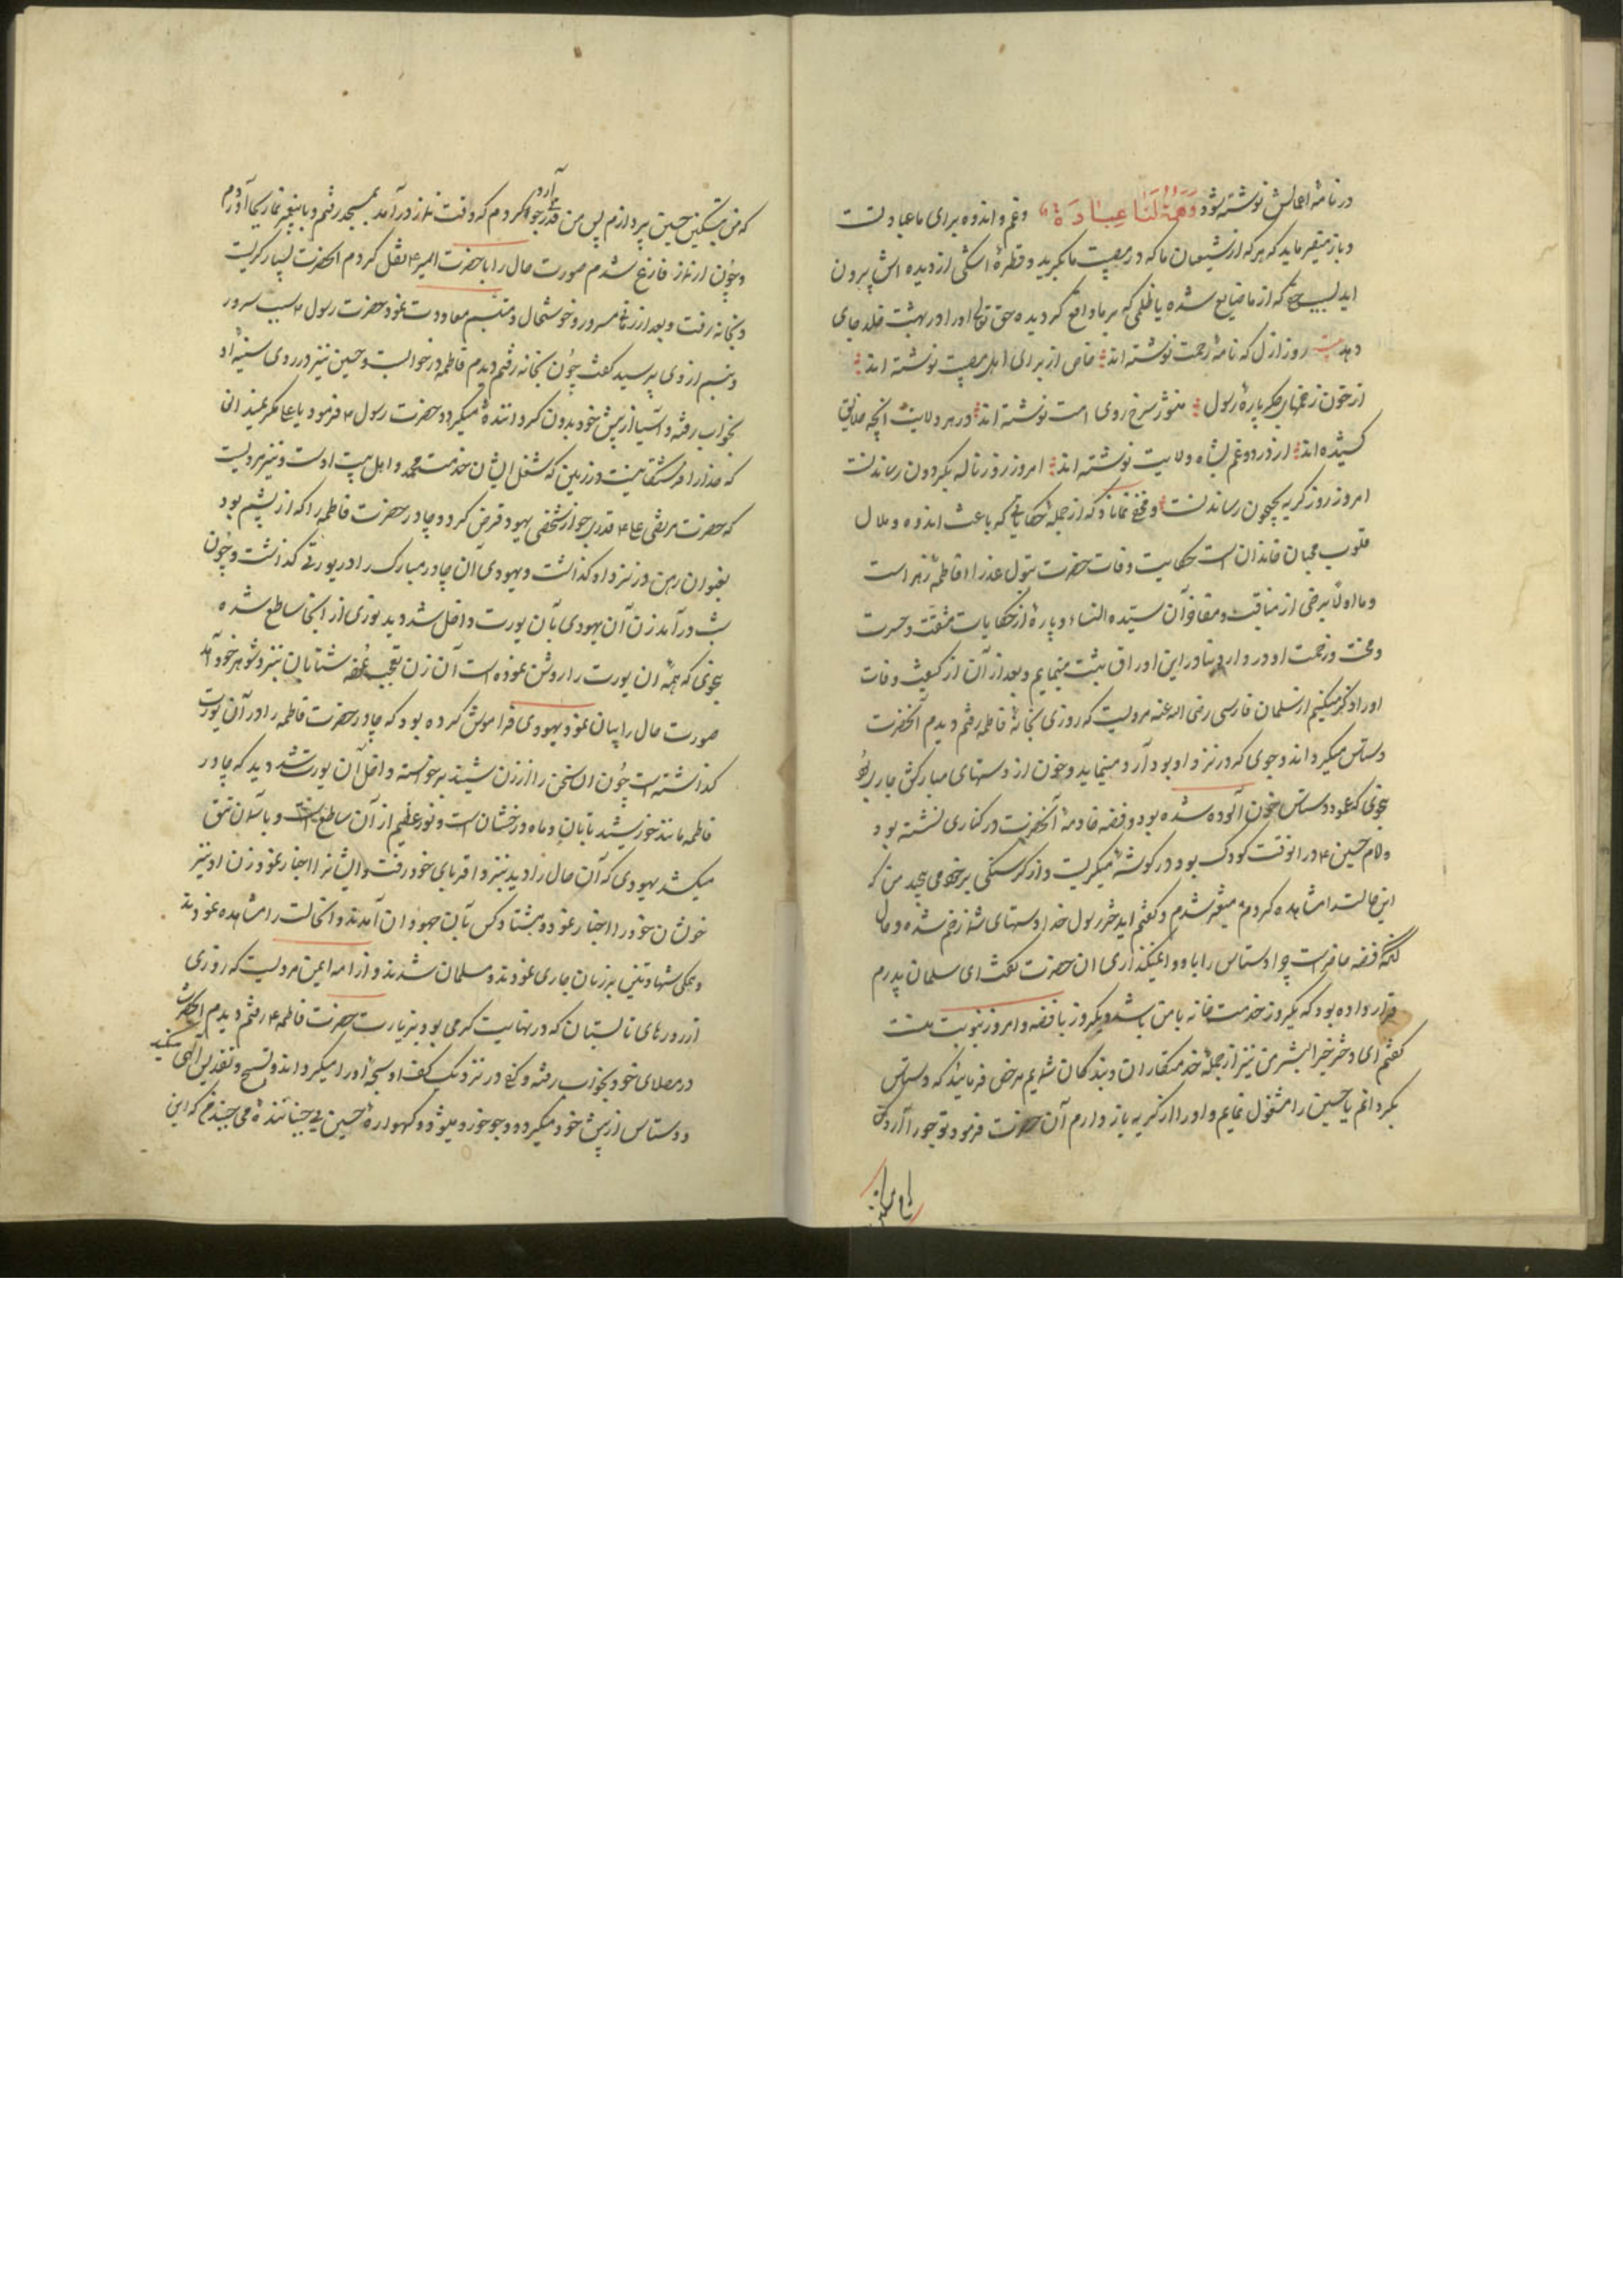 در نامهٔ اعمالش نوشته شود وَهَمُّهُ لَنَا عِبَادَة وغم و اندوه برای ما عبادتست
و باز میفرماید که هر که از شیعیان ما که در مصیبت ما بگرید و قطرهٔ اشکی از دیده اش بیرون
اید بسبب حقی که از ما ضایع شده یا ظلمی که بر ما واقع گردیده حق تعالی او را در بهشت خلد جای
دهد بیت روز ازل که نامهٔ رحمت نوشته اند خاص از برای اهل مصیبت نوشته اند
از خون زخمهای جگر پارهٔ رسول منشور سرخ روی امت نوشته اند در هر ولایت انچه خلایق
کشیده اند از درد و غم بشاه ولایت نوشته اند امروز روز ناله بگردون رساندنست
امروز روز گریه بجیحون رساندنست و مخفی نماناد که از جملهٔ حکایاتی که باعث اندوه و ملال
قلوب محبان خاندان است حکایت وفات حضرت بتول عذرا فاطمهٔ زهرا است
و ما اولا برخی از مناقب و مفاخر آن سیّده النساء و پارهٔ از حکایات مشقت و حسرت
و محنت و زحمت او در دار دنیا در این اوراق ثبت مینمایم و بعد از آن از کیفیت وفات
او را ذکر میکنیم از سلمان فارسی رضی الله عنه مرویست که روزی بخانهٔ فاطمه رفتم دیدم آنحضرت
دستاس میگرداند و جوی که در نزد او بود آرد مینماید و خون از دستهای مبارکش جاری بود
بنحوی که عمود دستاس خون آلوده شده بود و فضه خادمهٔ آنحضرت در کناری نشسته بود
و امام حسین ۴ در انوقت کودک بود در گوشهٔ میگریست و از گرسنگی بر خود می پیچید من که
این حالت را مشاهده کردم متغیر شدم و گفتم ای دختر رسول خدا دستهای شما زخم شده و حال
آنکه فضه حاضر است چرا دستاس را باو وا نمیگذاری ان حضرت گفت ای سلمان پدرم
قرار داده بود که یکروز خدمت خانه با من باشد و یکروز با فضه و امروز نوبت منست
گفتم ای دختر خیر البشر من نیز از جملهٔ خدمتکاران و بندگان شمایم مرخص فرمایید که دستاس
بگردانم یا حسین را مشغول نمایم و او را از گریه باز دارم آن حضرت فرمود تو جو را آرد کن
که من بتسکین حسین پردازم پس من قدری جو را آرد کردم که وقت نماز در آمد بمسجد رفتم و با پیغمبر نماز بجا آوردم
و چون از نماز فارغ شدم صورت حال را با حضرت امیر ۴ نقل کردم انحضرت بسیار گریست
و بخانه رفت و بعد از زمانی مسرور و خوشحال و متبسم معاودت نمود حضرت رسول ۴ سبب سرور
و تبسم از وی پرسید گفت چون بخانه رفتم دیدم فاطمه در خوابست و حسین نیز در روی سینهٔ او
بخواب رفته و آسیا از پیش خود بدون گردانندهٔ میگردد حضرت رسول ۴ فرمود یا علی مگر نمیدانی
که خدا را فرشتگانیست در زمین که شغل ایشان خدمت محمد و اهل بیت اوست و نیز مرویست
که حضرت مرتضی علی ۴ قدری جو از شخصی یهود قرض کرد و چادر حضرت فاطمه را که از پشم بود
بعنوان رهن در نزد او گذاشت و یهودی آن چادر مبارک را در یورتی گذاشت و چون
شب در آمد زن آن یهودی بآن یورت داخل شد و دید نوری از انجا ساطع شده
بنحوی که همهٔ ان یورت را روشن نموده است آن زن تعجب نموده شتابان بنزد شوهر خود آمد
صورت حال را بیان نمود یهودی فراموش کرده بود که چادر حضرت فاطمه را در آن یورت
گذاشته است چون ان سخن را از زن شنید برخواسته داخل آن یورت شد دید که چادر
فاطمه مانند خورشید تابان و ماه درخشان است و نور عظیم از آن ساطع است و بآسمان تتق
میکشد یهودی که آن حال را دید بنزد اقربای خود رفت و ایشانرا اخبار نمود و زن او نیز
خویشان خود را اخبار نمود و هشتاد کس بآن جهودان آمدند و انحالت را مشاهده نمودند
و همگی شهادتین بر زبان جاری نمودند و مسلمان شدند و از ام ایمن مرویست که روزی
از روزهای تابستان که در نهایت گرمی بود بزیارت حضرت فاطمه ۴ رفتم دیدم انحضرت
در مصلای خود بخواب رفته و کفی در نزدیک کف او سبحهٔ او را میگرداند و تسبیح و تقدیس الهی میکند
و دستاس از پیش خود میگردد و جو خورد میشود و گهوارهٔ حسین بی جنبانندهٔ می جنبد من که این